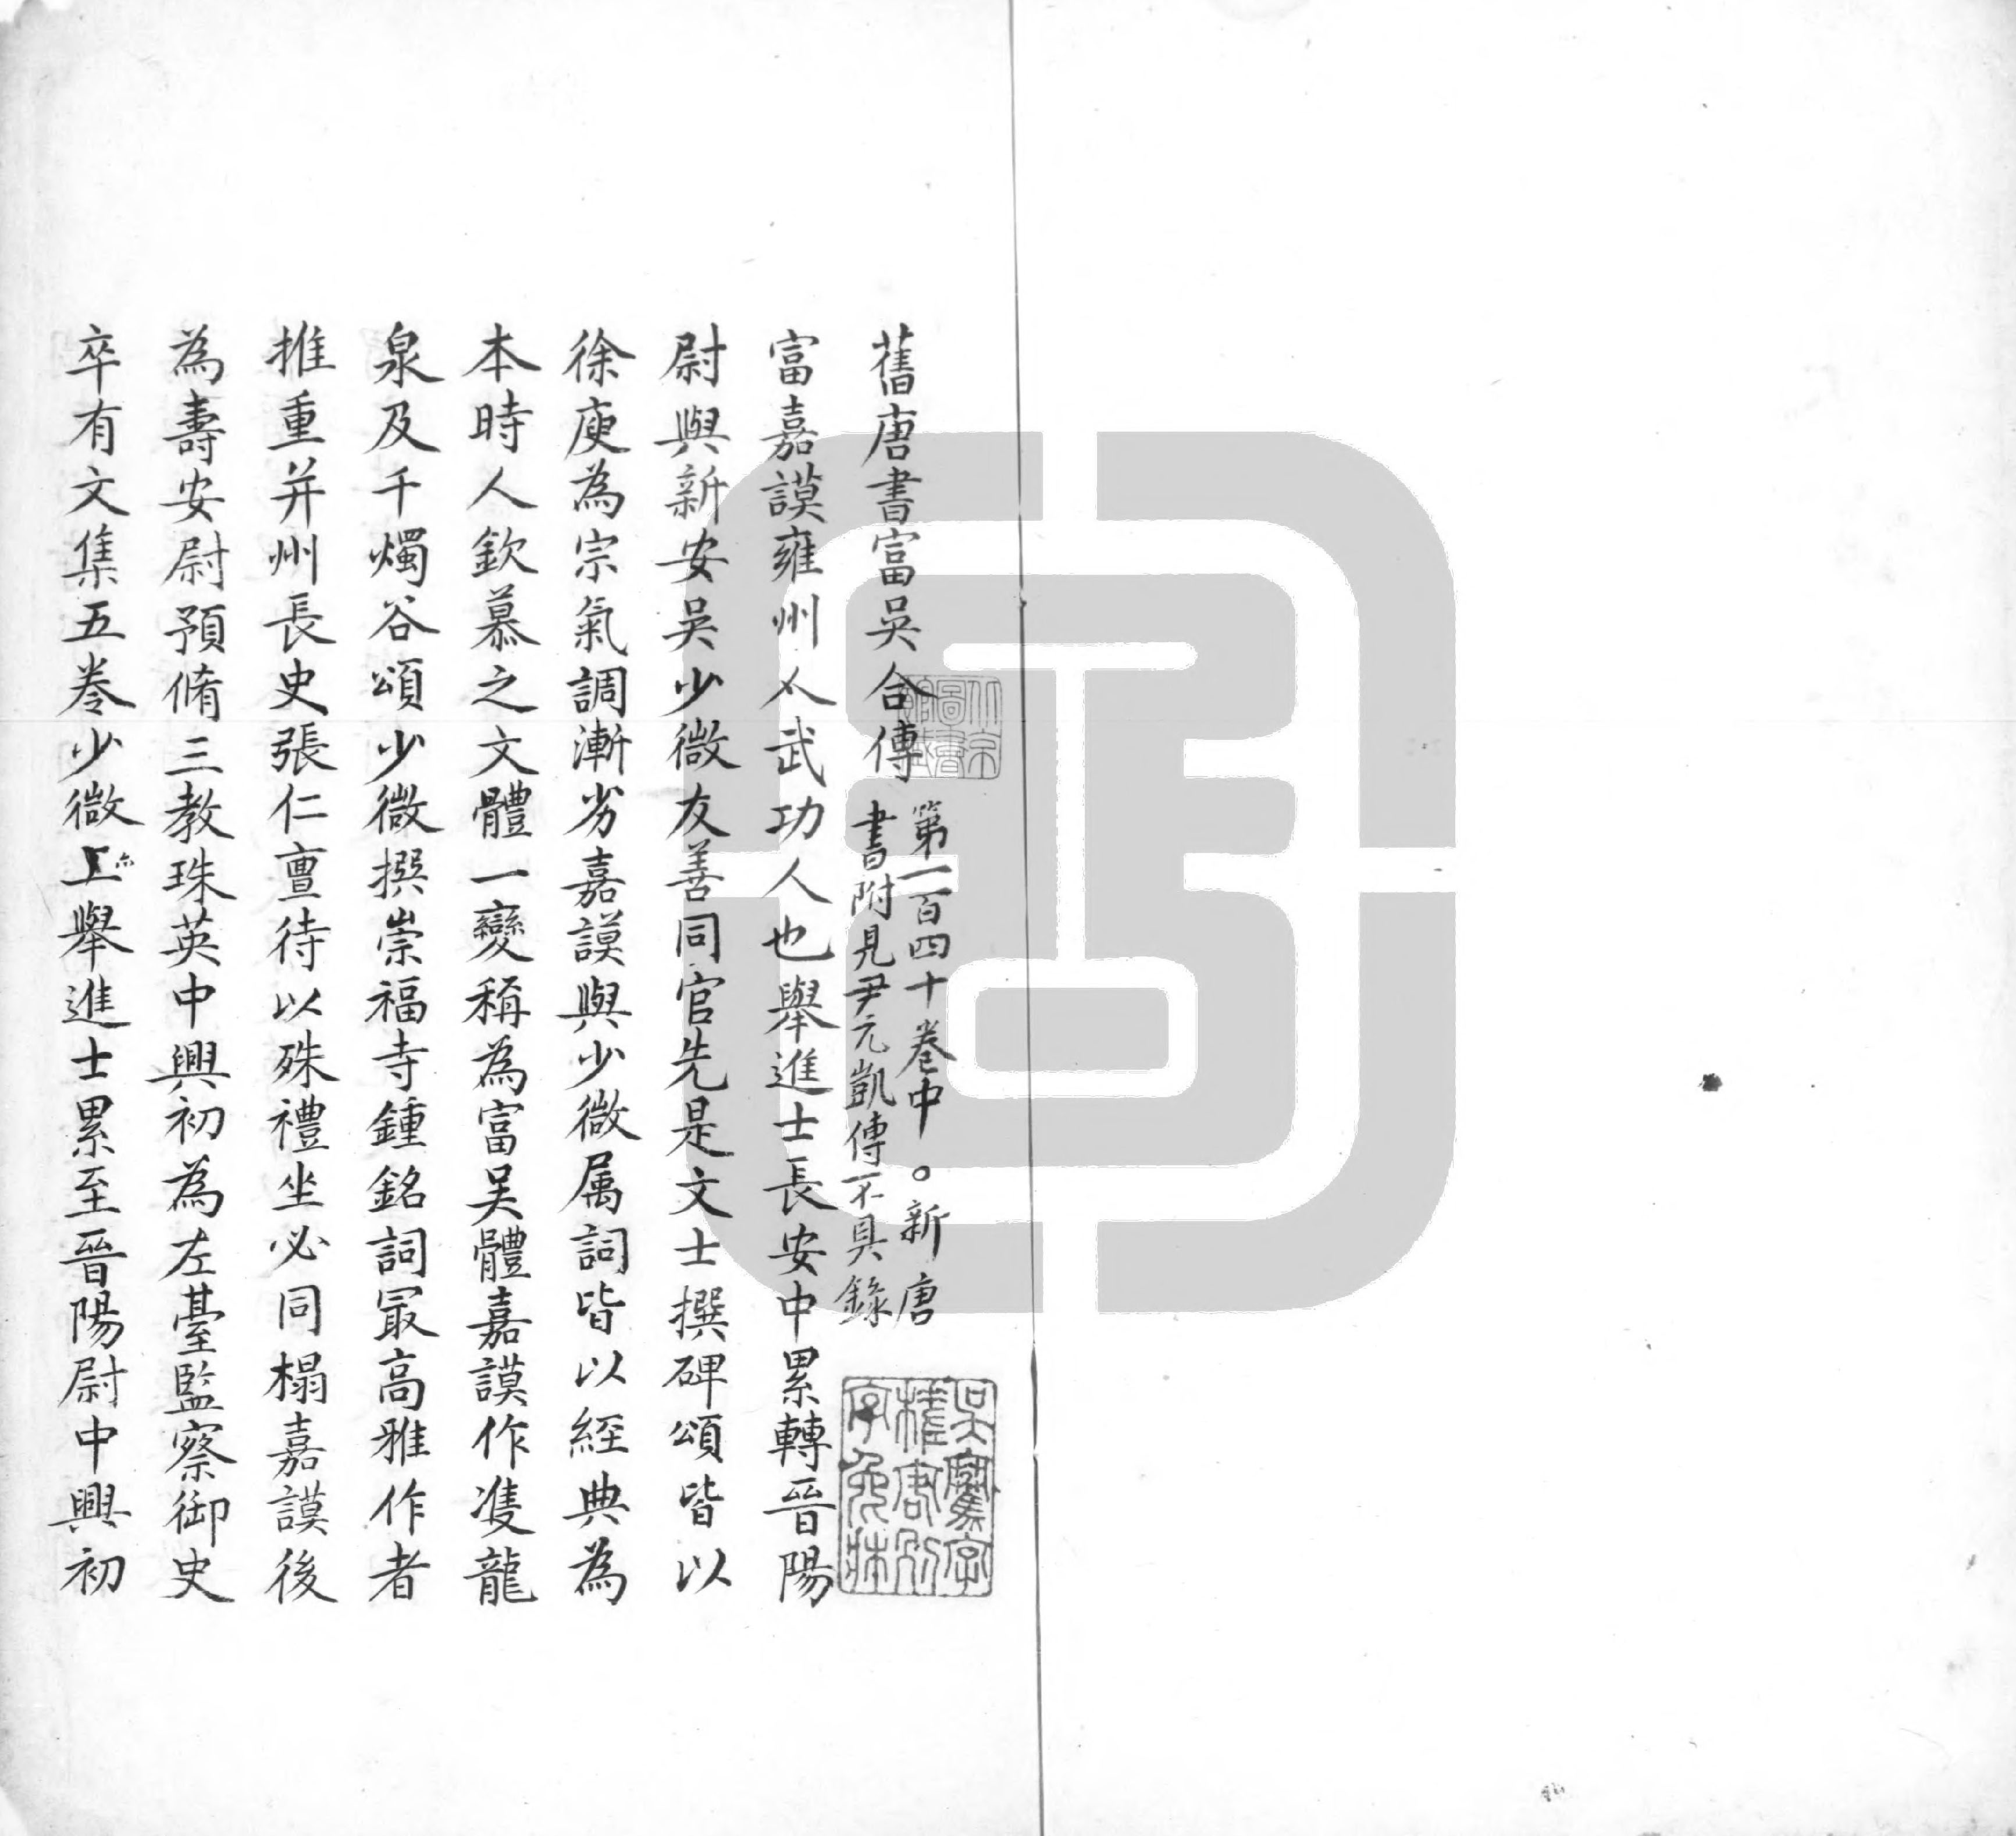 舊唐書富吳合傳
第一百四十卷中。新唐
書附見尹元凱傳不具錄
富嘉謨雍州人武功人也舉進士長安中累轉晉陽
尉與新安吳少微友善同官先是文士撰碑頌皆以
徐庾為宗氣調漸劣嘉謨與少微属詞皆以経典為
本時人欽慕之文體一變稱為富吳體嘉謨作䨇龍
泉及千燭谷頌少微撰崇福寺鍾銘詞冣高雅作者
推重并州長史張仁亶待以殊禮坐必同榻嘉謨後
為壽安尉預脩三教珠英中興初為左臺監察御史
卒有文集五卷少微亦舉進士累至晉陽尉中興初
京
圖書